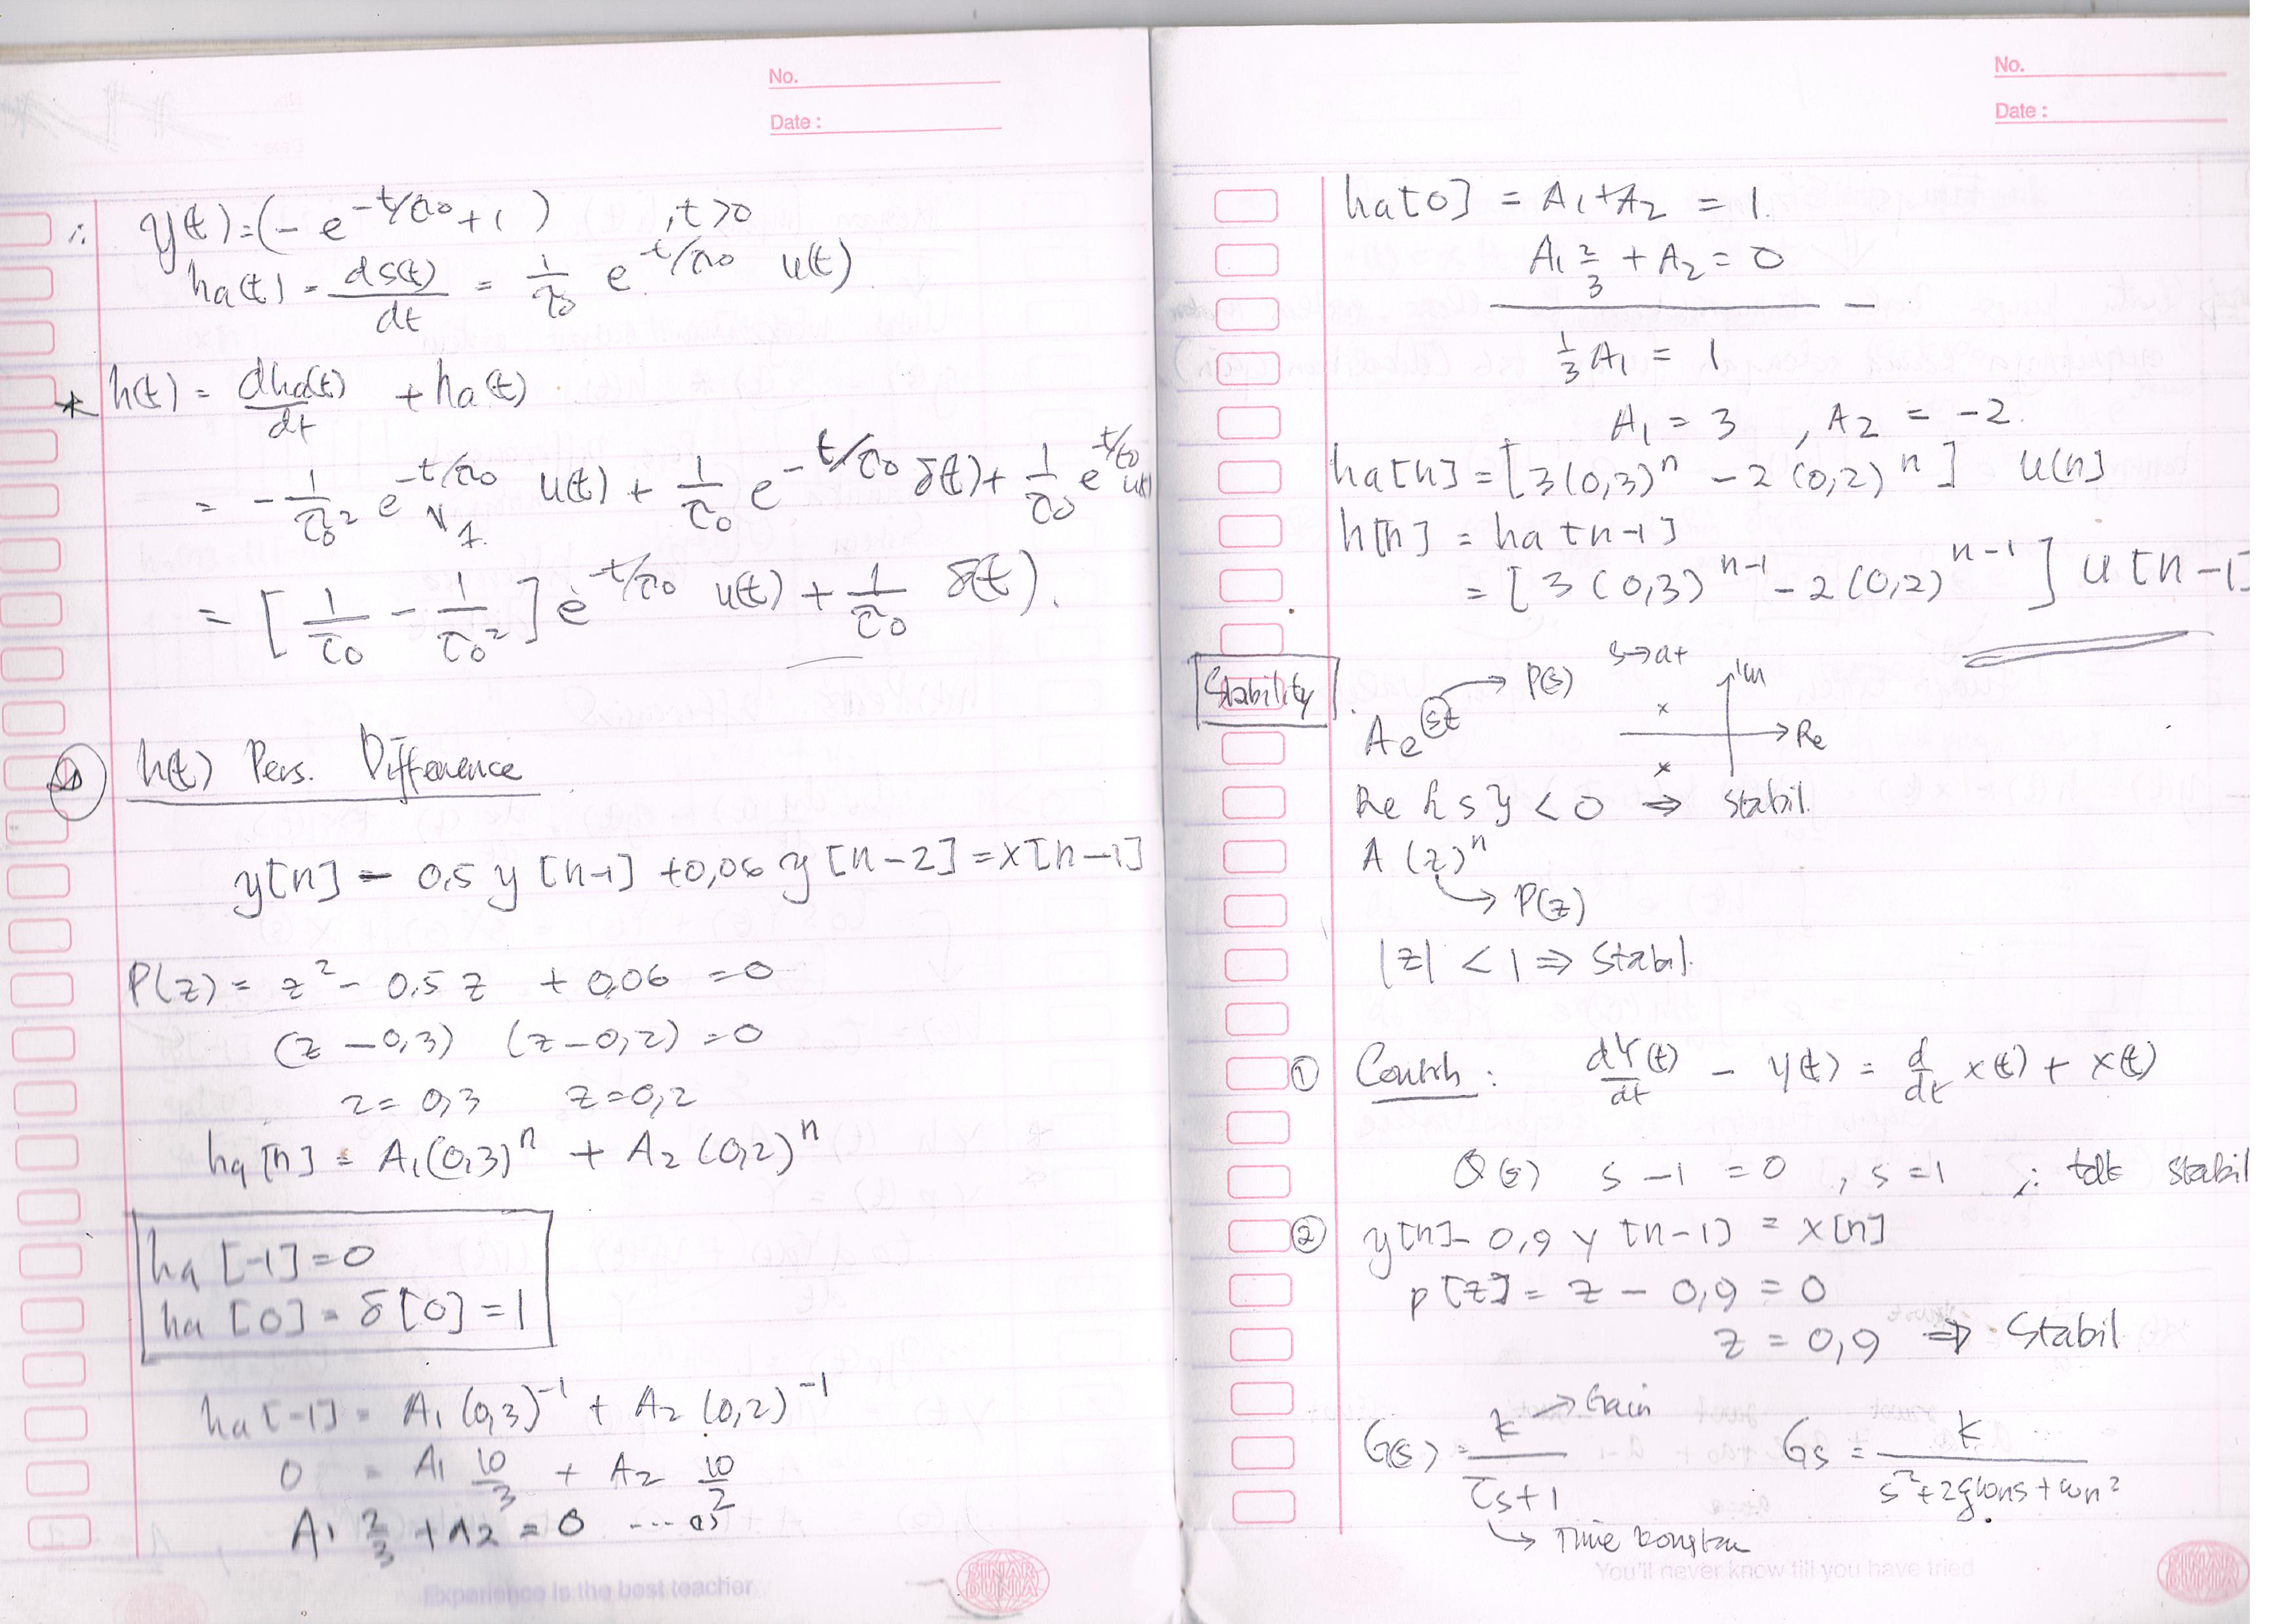 No.
Date :
∴ y(t) = (- e^{-t/τ0} + 1) , t > 0
ha(t) = ds(t)/dt = 1/τ0 e^{-t/τ0} u(t)
* h(t) = dha(t)/dt + ha(t)
= - 1/τ0² e^{-t/τ0} u(t) + 1/τ0 e^{-t/τ0} δ(t) + 1/τ0 e^{-t/τ0} u(t)
= [1/τ0 - 1/τ0²] e^{-t/τ0} u(t) + 1/τ0 δ(t).
h(t) Pers. Difference
y[n] - 0,5 y [n-1] + 0,06 y [n-2] = x[n-1]
P(z) = z² - 0,5 z + 0,06 = 0
(z - 0,3) (z - 0,2) = 0
z = 0,3 z = 0,2
ha [n] = A1 (0,3)^n + A2 (0,2)^n
ha [-1] = 0
ha [0] = δ[0] = 1
ha [-1] = A1 (0,3)^{-1} + A2 (0,2)^{-1}
0 = A1 10/3 + A2 10/2
A1 2/3 + A2 = 0
Experience is the best teacher
SINAR DUNIA
No.
Date :
ha[0] = A1 + A2 = 1.
A1 2/3 + A2 = 0
1/3 A1 = 1
A1 = 3 , A2 = -2.
ha[n] = [3(0,3)^n - 2(0,2)^n] u[n]
h[n] = ha[n-1]
= [3(0,3)^{n-1} - 2(0,2)^{n-1}] u[n-1]
Stability
A e^{st} → P(s)
Im
Re
Re {s} < 0 ⇒ stabil.
A (z)^n
→ P(z)
|z| < 1 ⇒ Stabil.
① Contoh : dY(t)/dt - y(t) = d/dt x(t) + x(t)
Q(s) s - 1 = 0 , s = 1 ∴ tdk stabil
② y[n] - 0,9 y [n-1] = x[n]
p[z] = z - 0,9 = 0
z = 0,9 ⇒ Stabil
G(s) = k/(τs + 1) → Gain
Gs = k/(s² + 2ξωns + ωn²)
→ Time
You'll never know till you have tried
SINAR DUNIA